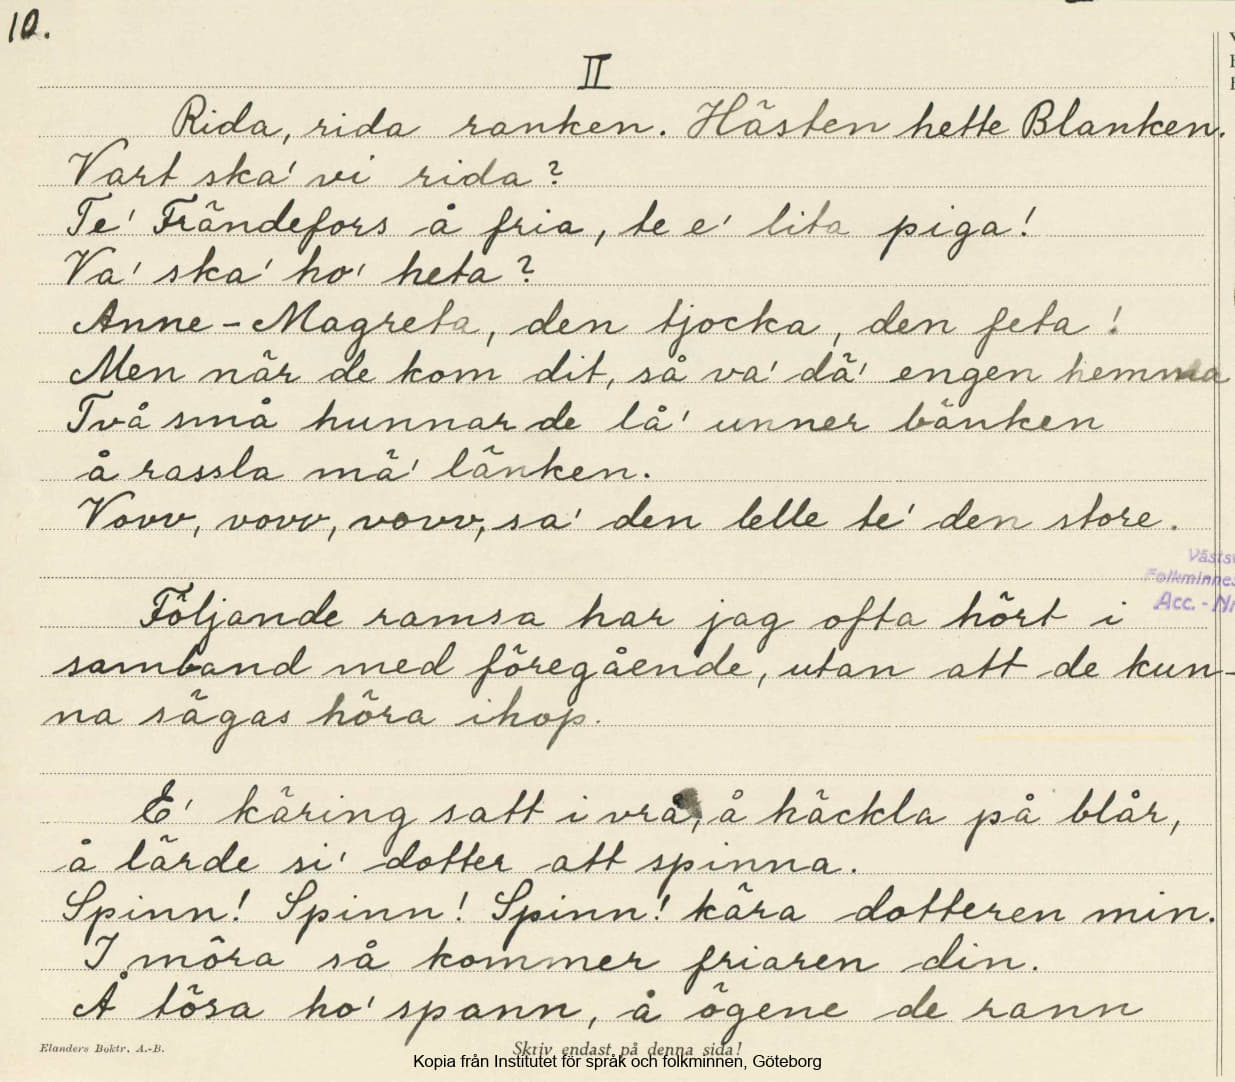 10.
II
Rida, rida ranken. Hästen hette Blanken.
Vart ska' vi rida?
Te' Frändefors å fria, te e' lita piga!
Va' ska' ho' heta?
Anne-Magreta, den tjocka, den feta!
Men när de kom dit, så va' dä' engen hemma
Två små hunnar de lå' unner bänken
å rassla mä' länken.
Vovv, vovv, vovv, sa' den lelle te' den store.
Västsv
Folkminnes
Acc. - Nr
Följande ramsa har jag ofta hört i
samband med föregående, utan att de kun-
na sägas höra ihop.
E' käring satt i vrå, å häckla på blår,
å lärde si' dotter att spinna.
Spinn! Spinn! Spinn! kära dotteren min.
I möra så kommer friaren din.
Å tösa ho' spann, å ögene de rann
Elanders Boktr. A.-B.
Skriv endast på denna sida!
Kopia från Institutet för språk och folkminnen, Göteborg